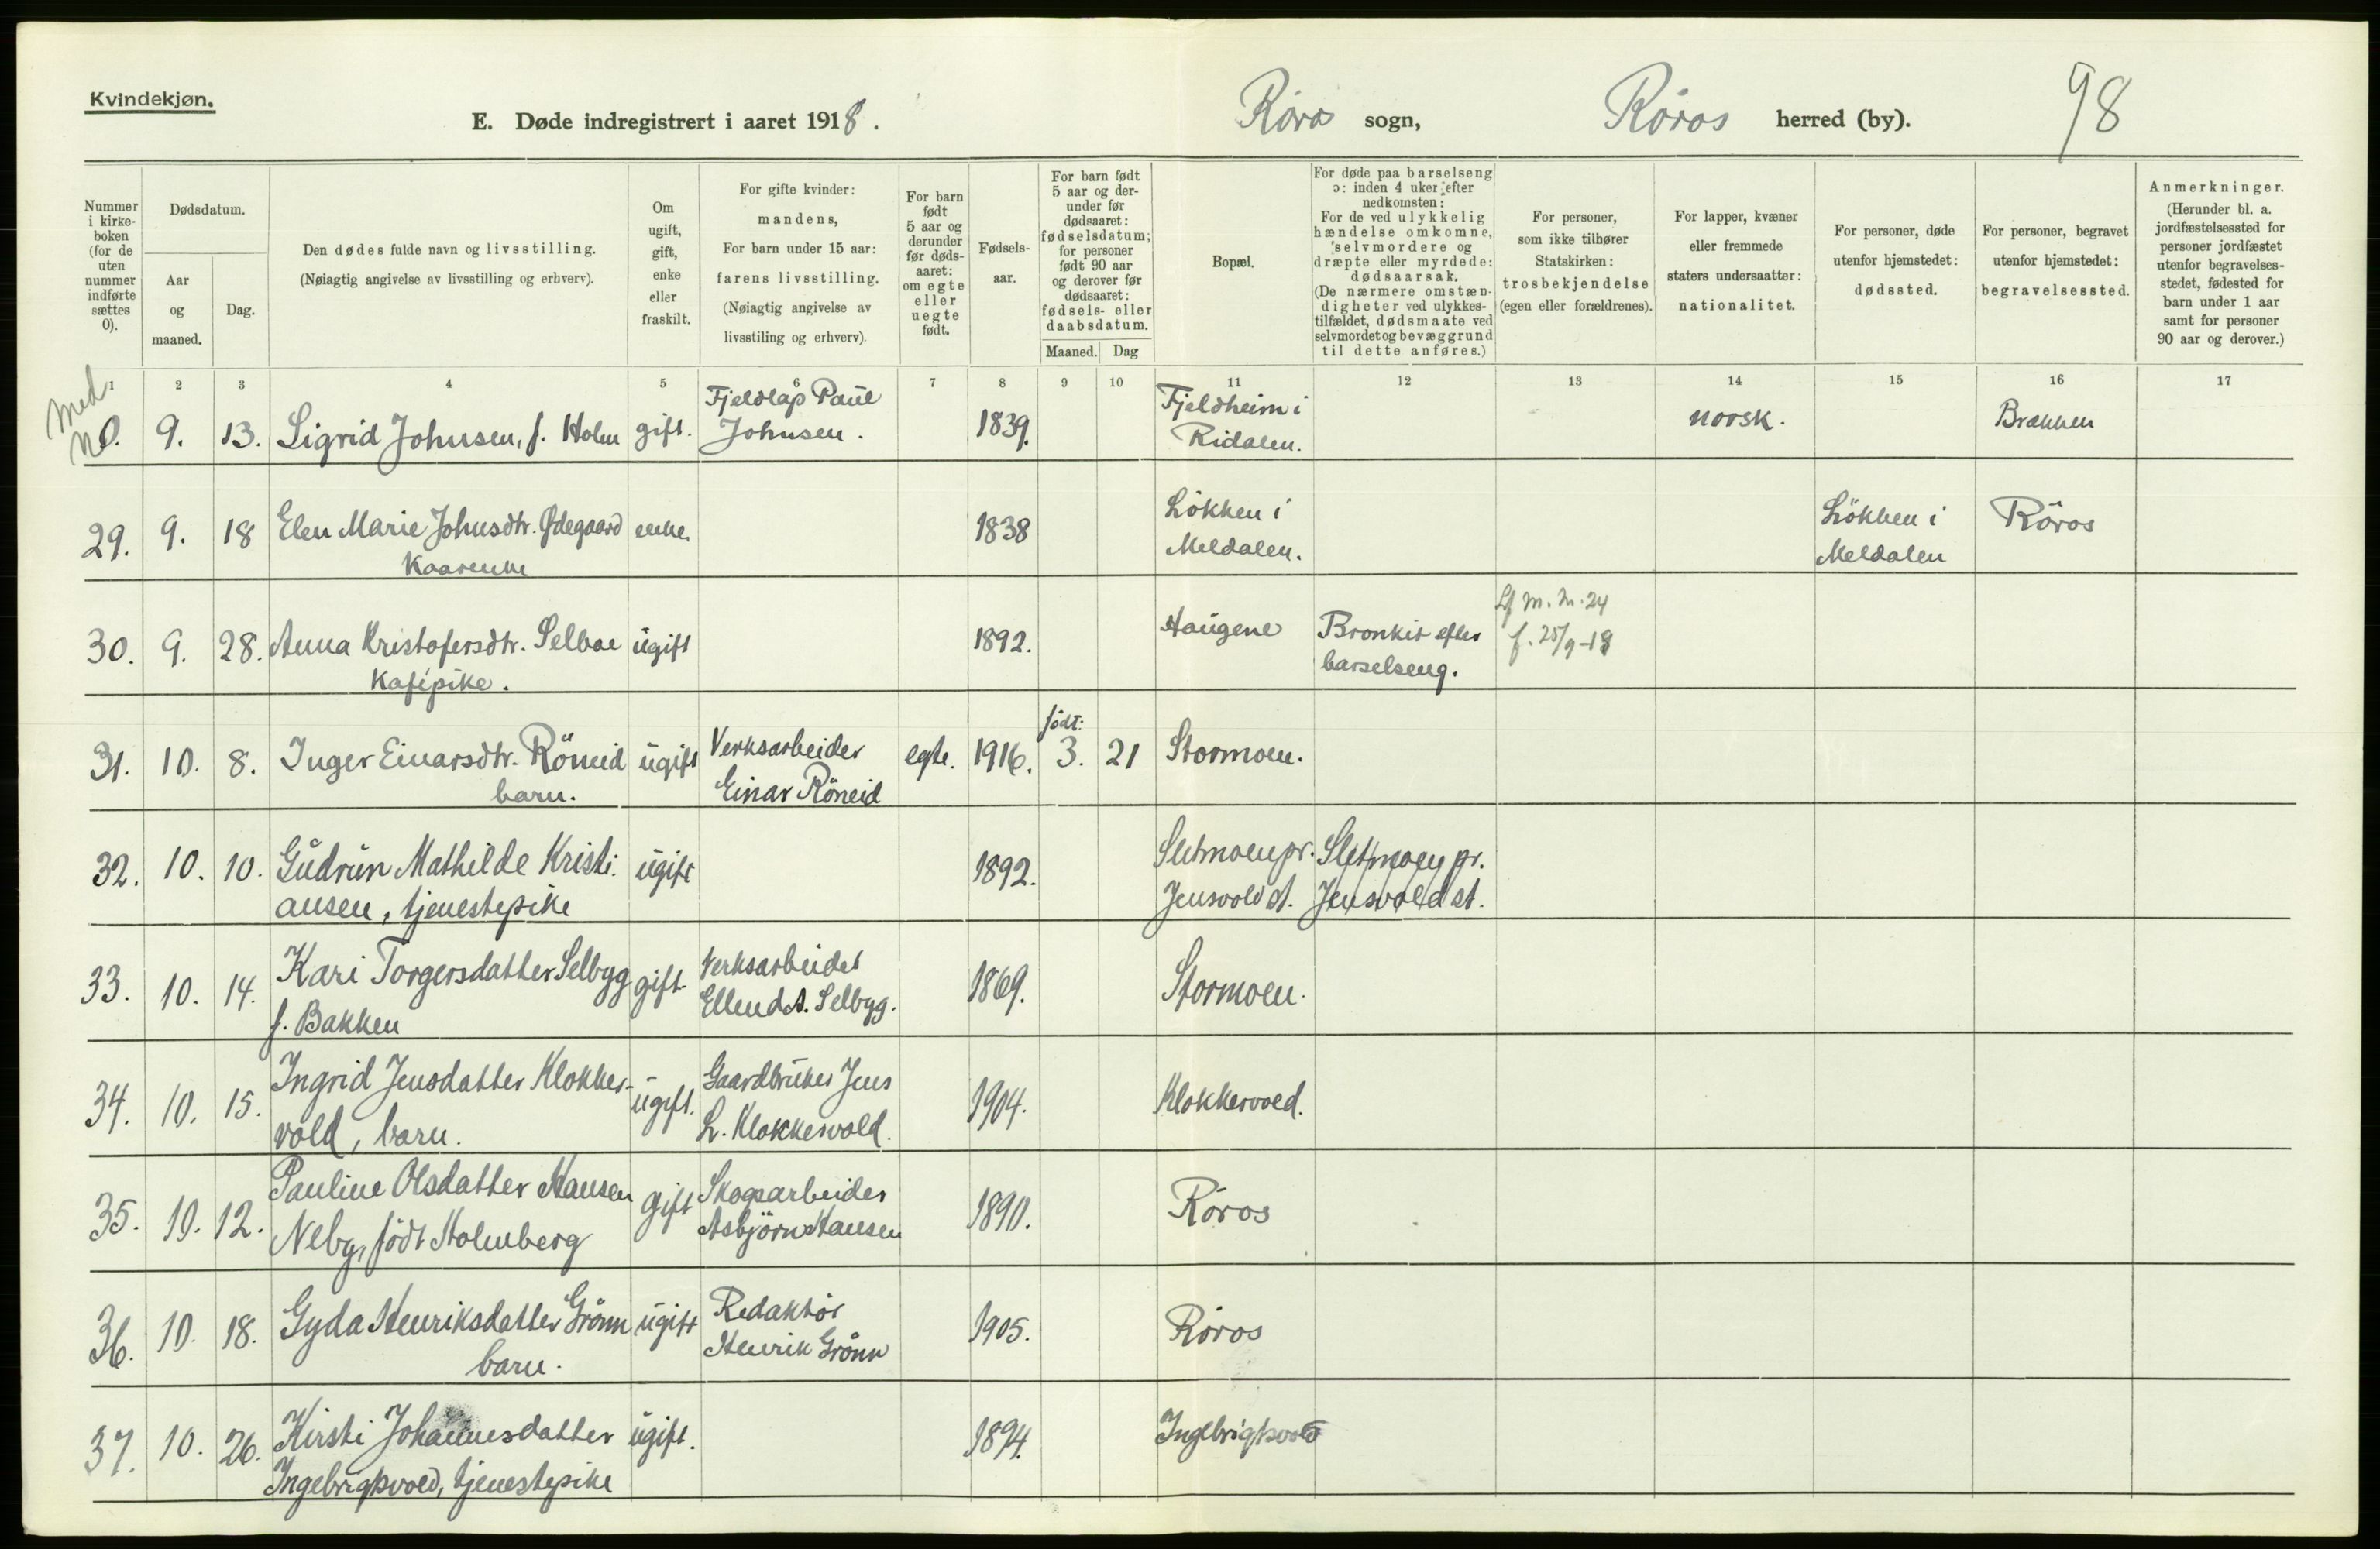 Kvindekjøn.
E. Døde indregistrert i aaret 1918.
Röros sogn,
Röros herred (by).
98
Nummer i kirke-boken (for de uten nummer indførte sættes 0).
Dødsdatum.
Aar og maaned.
Dag.
Den dødes fulde navn og livsstilling.
(Nøiagtig angivelse av livsstilling og erhverv).
Om ugift, gift, enke eller fraskilt.
For gifte kvinder: mandens,
For barn under 15 aar: farens livsstilling.
(Nøiagtig angivelse av livsstiling og erhverv).
For barn født 5 aar og derunder før døds-aaret: om egte eller uegte født.
Fødsels-aar.
For barn født 5 aar og der-under før dødsaaret: fødselsdatum; for personer født 90 aar og derover før dødsaaret: fødsels- eller daabsdatum.
Maaned.
Dag
Bopæl.
For døde paa barselseng ɔ: inden 4 uker efter nedkomsten:
For de ved ulykkelig hændelse omkomne, selvmordere og dræpte eller myrdede: dødsaarsak.
(De nærmere omstæn-digheter ved ulykkes-tilfældet, dødsmaate ved selvmordet og bevæggrund til dette anføres.)
For personer, som ikke tilhører Statskirken: trosbekjendelse (egen eller forældrenes).
For lapper, kvæner eller fremmede staters undersaatter: nationalitet.
For personer, døde utenfor hjemstedet: dødssted.
For personer, begravet utenfor hjemstedet: begravelsessted.
Anmerkninger.
(Herunder bl. a. jordfæstelsessted for personer jordfæstet utenfor begravelses-stedet, fødested for barn under 1 aar samt for personer 90 aar og derover.)
1 2 3 4 5 6 7 8 9 10 11 12 13 14 15 16 17
med
0. 9. 13. Sigrid Johnsen, f. Holm gift. Fjeldlap Paul Johnsen. 1839. Fjeldheim i Ridalen. norsk. Brækken
29. 9. 18 Elen Marie Johnsdtr. Ødegaard enke 1838 Lökken i Meldalen. Lökken i Meldalen Röros
Kaarenke
30. 9. 28. Anna Kristofersdtr. Selboe ugift 1892. Haugene Bronkit efter barselseng. Lf M. m. 24 f. 25/9-18
Kafépike.
31. 10. 8. Inger Einarsdtr. Röneid ugift Verksarbeider Einar Röneid egte. 1916. født: 3. 21 Stormoen.
barn.
32. 10. 10. Gudrun Mathilde Kristi- ugift 1892. Sletmoen pr. Jensvold st. Sletmoen pr. Jensvold st.
ansen, tjenestepike
33. 10. 14. Kari Torgersdatter Selbyg gift Verksarbeider Ellend A. Selbyg. 1869. Stormoen.
f. Bakken
34. 10. 15. Ingrid Jensdatter Klokker- ugift. Gaardbruker Jens L. Klokkervold. 1904. Klokkervold.
vold, barn.
35. 10. 12. Pauline Olsdatter Hansen gift Skogsarbeider Asbjörn Hansen 1890. Röros
Neby, födt Holmberg
36. 10. 18. Gyda Henriksdatter Grönn ugift Redaktör Henrik Grönn 1905. Röros
barn.
37. 10. 26. Kirsti Johannesdatter ugift. 1894. Ingebrigtsvold
Ingebrigtsvold, tjenestepike